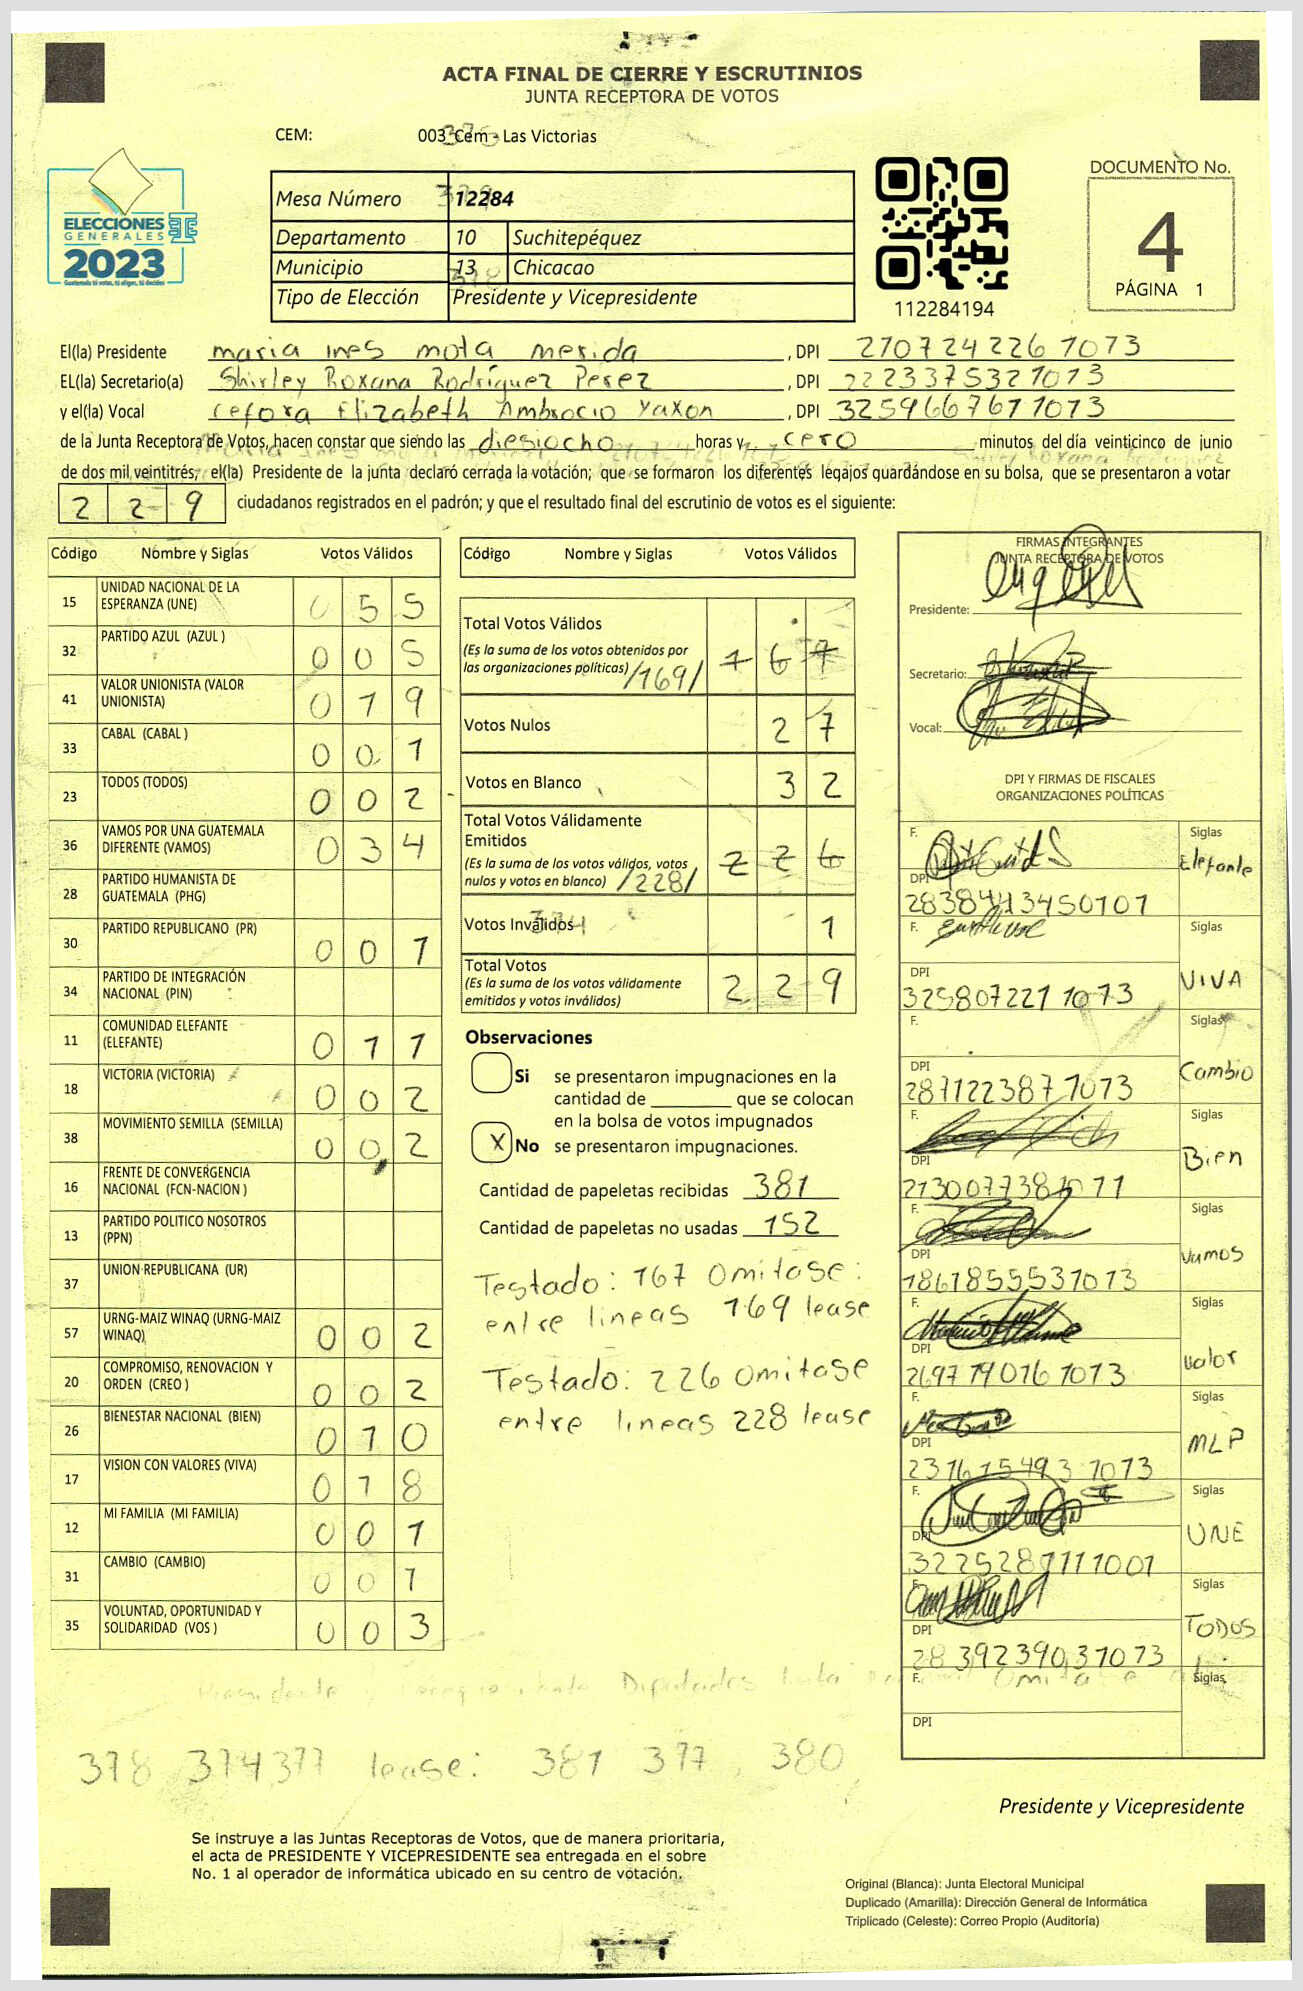 ACTA FINAL DE CIERRE Y ESCRUTINIOS
JUNTA RECEPTORA DE VOTOS
CEM: 003_Cem - Las Victorias
ELECCIONES
GENERALES
2023
Guatemala tú votas, tú eliges, tú decides
Mesa Número 12284
Departamento 10 Suchitepéquez
Municipio 13 Chicacao
Tipo de Elección Presidente y Vicepresidente
112284194
DOCUMENTO No.
4
PÁGINA 1
El(la) Presidente maria ines mota merida, DPI 2107242261073
EL(la) Secretario(a) Shirley Roxana Rodríguez Perez, DPI 2223375321013
y el(la) Vocal Cefora Elizabeth Ambrocio Yaxon, DPI 3259667611073
de la Junta Receptora de Votos, hacen constar que siendo las diesiocho horas y cero minutos del día veinticinco de junio
de dos mil veintitrés, el(la) Presidente de la junta declaró cerrada la votación; que se formaron los diferentes legajos guardándose en su bolsa, que se presentaron a votar
229 ciudadanos registrados en el padrón; y que el resultado final del escrutinio de votos es el siguiente:
Código Nombre y Siglas Votos Válidos
15 UNIDAD NACIONAL DE LA ESPERANZA (UNE) 055
32 PARTIDO AZUL (AZUL) 005
41 VALOR UNIONISTA (VALOR UNIONISTA) 019
33 CABAL (CABAL) 001
23 TODOS (TODOS) 002
36 VAMOS POR UNA GUATEMALA DIFERENTE (VAMOS) 034
28 PARTIDO HUMANISTA DE GUATEMALA (PHG)
30 PARTIDO REPUBLICANO (PR) 001
34 PARTIDO DE INTEGRACIÓN NACIONAL (PIN)
11 COMUNIDAD ELEFANTE (ELEFANTE) 011
18 VICTORIA (VICTORIA) 002
38 MOVIMIENTO SEMILLA (SEMILLA) 002
16 FRENTE DE CONVERGENCIA NACIONAL (FCN-NACION)
13 PARTIDO POLITICO NOSOTROS (PPN)
37 UNION REPUBLICANA (UR)
57 URNG-MAIZ WINAQ (URNG-MAIZ WINAQ) 002
20 COMPROMISO, RENOVACION Y ORDEN (CREO) 002
26 BIENESTAR NACIONAL (BIEN) 010
17 VISION CON VALORES (VIVA) 018
12 MI FAMILIA (MI FAMILIA) 001
31 CAMBIO (CAMBIO) 001
35 VOLUNTAD, OPORTUNIDAD Y SOLIDARIDAD (VOS) 003
Código Nombre y Siglas Votos Válidos
Total Votos Válidos
(Es la suma de los votos obtenidos por
las organizaciones políticas) /169/ 167
Votos Nulos 27
Votos en Blanco 32
Total Votos Válidamente
Emitidos
(Es la suma de los votos válidos, votos
nulos y votos en blanco) /228/ 226
Votos Inválidos 1
Total Votos
(Es la suma de los votos válidamente
emitidos y votos inválidos) 229
Observaciones
Si se presentaron impugnaciones en la
cantidad de ________ que se colocan
en la bolsa de votos impugnados
X No se presentaron impugnaciones.
Cantidad de papeletas recibidas 381
Cantidad de papeletas no usadas 152
Testado: 167 Omitase:
entre lineas 169 lease
Testado: 226 Omitase
entre lineas 228 lease
FIRMAS INTEGRANTES
JUNTA RECEPTORA DE VOTOS
Presidente:
Secretario:
Vocal:
DPI Y FIRMAS DE FISCALES
ORGANIZACIONES POLÍTICAS
F. Siglas Elefante
DPI 2838413450101
F. Siglas VIVA
DPI 3258072211073
F. Siglas Cambio
DPI 2871223871073
F. Siglas Bien
DPI 2130077381011
F. Siglas Vamos
DPI 1861855531073
F. Siglas Valor
DPI 2697790761073
F. Siglas MLP
DPI 2316154931073
F. Siglas UNE
DPI 3225281111001
F. Siglas TODOS
DPI 2839239031073
F. Siglas
DPI
378 374 377 lease: 381 377, 380
Presidente y Vicepresidente
Se instruye a las Juntas Receptoras de Votos, que de manera prioritaria,
el acta de PRESIDENTE Y VICEPRESIDENTE sea entregada en el sobre
No. 1 al operador de informática ubicado en su centro de votación.
Original (Blanca): Junta Electoral Municipal
Duplicado (Amarilla): Dirección General de Informática
Triplicado (Celeste): Correo Propio (Auditoría)